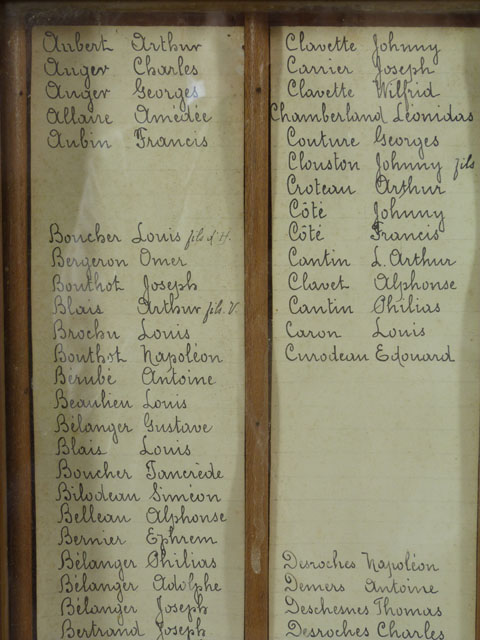 Aubert Arthur
Auger Charles
Auger Georges
Allaire Amédée
Aubin Francis
Boucher Louis fils d'H.
Bergeron Omer
Bouthot Joseph
Blais Arthur fils V.
Brochu Louis
Bouthot Napoléon
Bérubé Antoine
Beaulieu Louis
Bélanger Gustave
Blais Louis
Boucher Tancrède
Bilodeau Siméon
Belleau Alphonse
Bernier Ephrem
Bélanger Philias
Bélanger Adolphe
Bélanger Joseph
Bertrand Joseph
Clavette Johnny
Carrier Joseph
Clavette Wilfrid
Chamberland Léonidas
Couture Georges
Clouston Johnny fils
Croteau Arthur
Côté Johnny
Côté Francis
Cantin L. Arthur
Clavet Alphonse
Cantin Philias
Caron Louis
Curodeau Edouard
Desroches Napoléon
Demers Antoine
Deschesnes Thomas
Desroches Charles